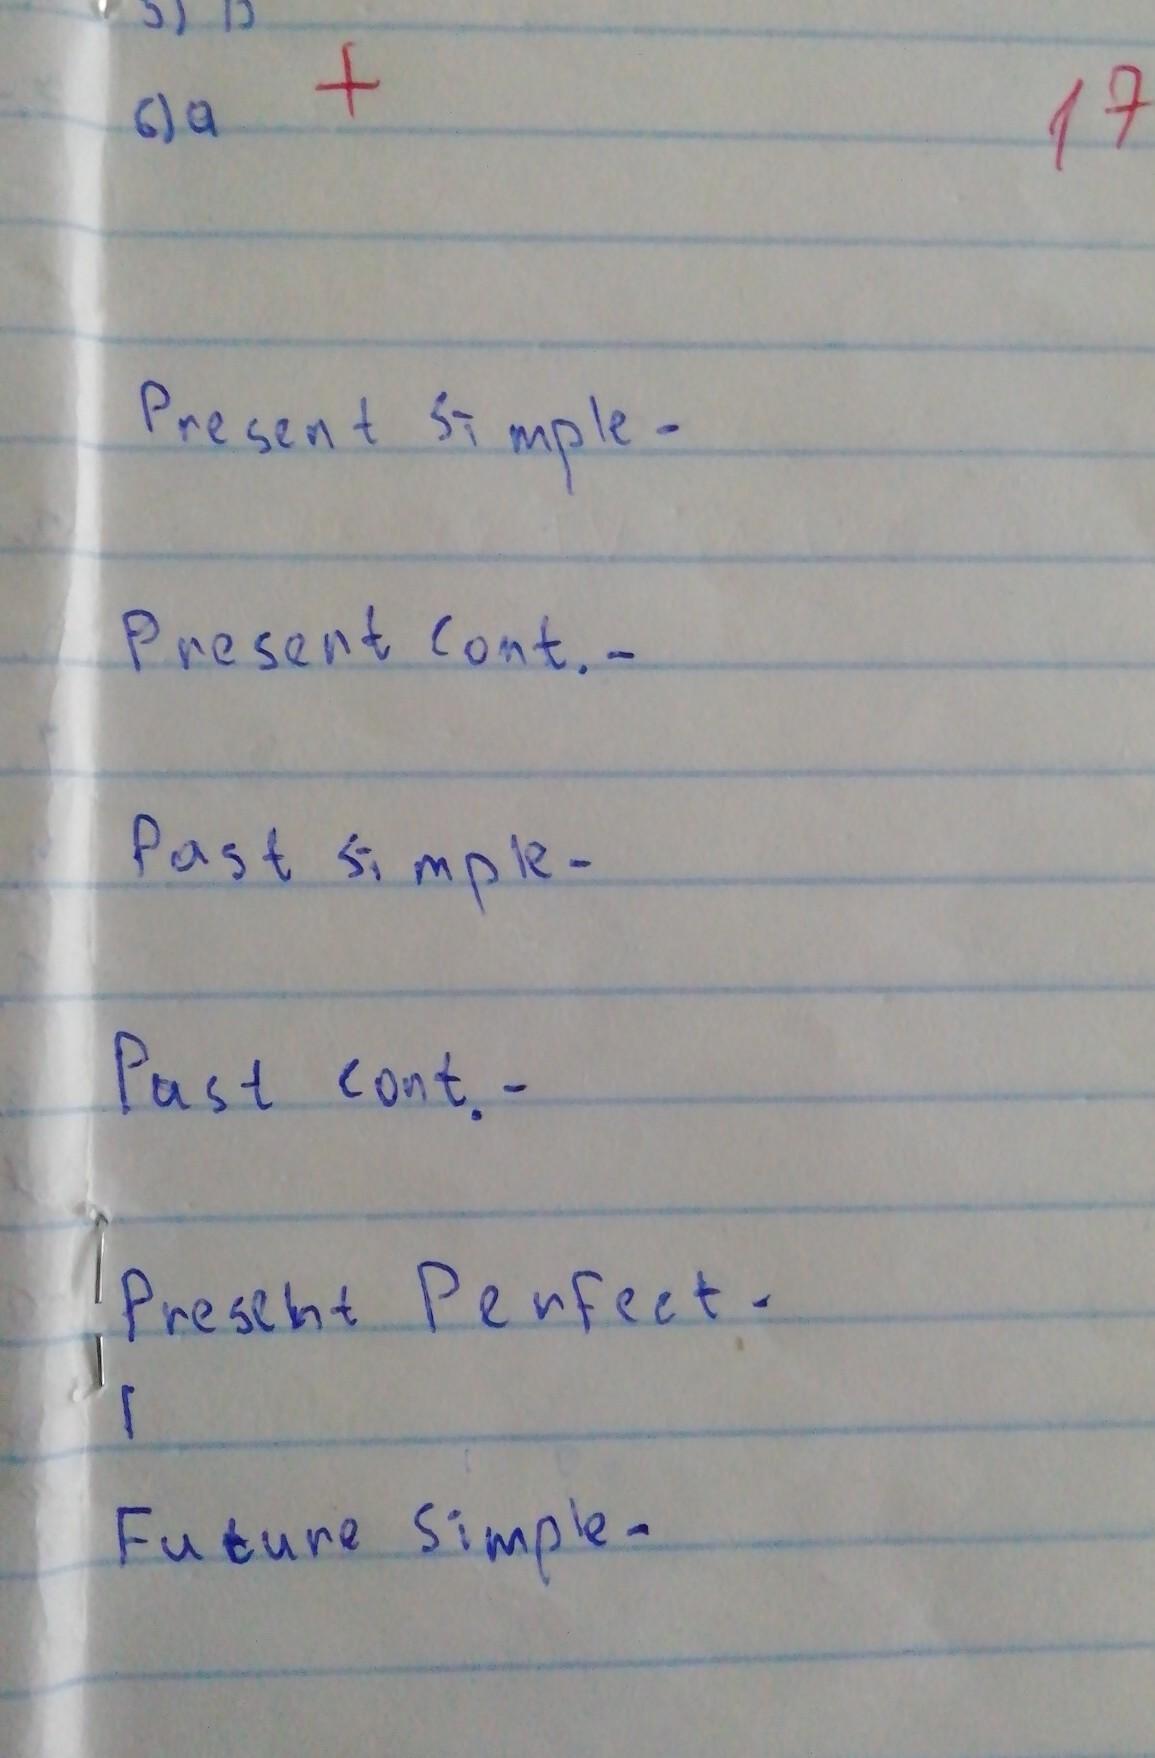 6) a + 17
Present simple -
Present cont. -
Past simple -
Past cont. -
Present Perfect -
Future Simple -